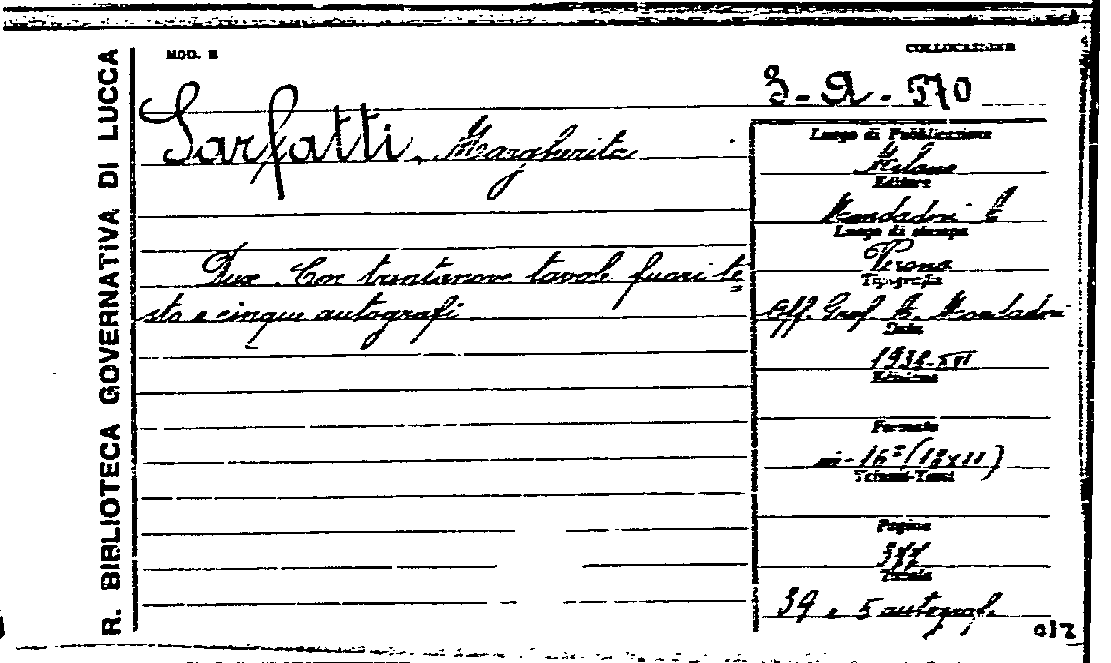 R. BIBLIOTECA GOVERNATIVA DI LUCCA
MOD. E
COLLOCAZIONE
3-A-570
Sarfatti, Margherita
Dux. Con trentanove tavole fuori te=
sto e cinque autografi
Luogo di Pubblicazione
Milano
Editore
Mondadori
Luogo di stampa
Verona
Tipografia
Off. Graf. A. Mondadori
Data
Edizione
Formato
in-16°
Volumi-Tomi
Pagine
377
Tavole
39 e 5 autograf.